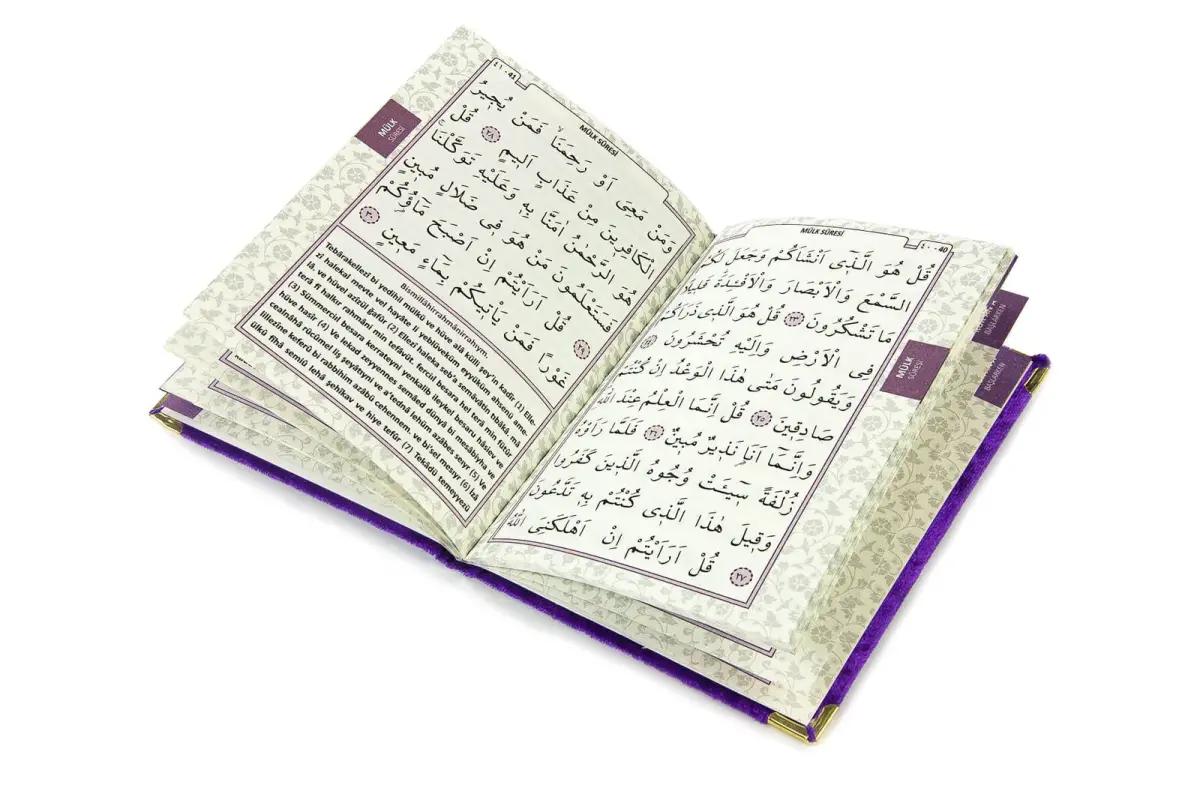 MÜLK SÛRESİ
٤٠ - 40
قُلْ هُوَ الَّذٖٓى اَنْشَاَكُمْ وَجَعَلَ لَكُمُ
السَّمْعَ وَالْاَبْصَارَ وَالْاَفْـِٔدَةَ قَلٖيلًا
مَا تَشْكُرُونَ ٢٣ قُلْ هُوَ الَّذٖى ذَرَاَكُمْ
فِى الْاَرْضِ وَاِلَيْهِ تُحْشَرُونَ ٢٤
وَيَقُولُونَ مَتٰى هٰذَا الْوَعْدُ اِنْ كُنْتُمْ
صَادِقٖينَ ٢٥ قُلْ اِنَّمَا الْعِلْمُ عِنْدَ اللّٰهِ
وَاِنَّمَٓا اَنَا نَذٖيرٌ مُبٖينٌ ٢٦ فَلَمَّا رَاَوْهُ
زُلْفَةً سٖٓيـَٔتْ وُجُوهُ الَّذٖينَ كَفَرُوا
وَقٖيلَ هٰذَا الَّذٖى كُنْتُمْ بِهٖ تَدَّعُونَ
٢٧ قُلْ اَرَاَيْتُمْ اِنْ اَهْلَكَنِىَ اللّٰهُ
MÜLK
SÛRESİ
BAŞLARKEN
BAŞLARKEN
٤١ - 41
MÜLK SÛRESİ
وَمَنْ مَعِىَ اَوْ رَحِمَنَا فَمَنْ يُجٖيرُ
الْكَافِرٖينَ مِنْ عَذَابٍ اَلٖيمٍ ٢٨ قُلْ
هُوَ الرَّحْمٰنُ اٰمَنَّا بِهٖ وَعَلَيْهِ تَوَكَّلْنَا
فَسَتَعْلَمُونَ مَنْ هُوَ فٖى ضَلَالٍ مُبٖينٍ
٢٩ قُلْ اَرَاَيْتُمْ اِنْ اَصْبَحَ مَٓاؤُكُمْ
غَوْرًا فَمَنْ يَاْتٖيكُمْ بِمَٓاءٍ مَعٖينٍ ٣٠
Bismillâhirrahmânirrahıym.
Tebârakellezî bi yedihil mülkü ve hüve alâ külli şey'in kadîr (1) Elle-
zî halekal mevte vel hayâte li yeblüveküm eyyüküm ahsenü ame-
lâ, ve hüvel azîzül ğafûr (2) Ellezî haleka seb'a semâvâtin tıbâkâ mâ
terâ fî halkır rahmâni min tefâvüt, ferciıl besara hel terâ min fütûr
(3) Sümmerciıl besara kerateyni yenkalib ileykel besaru hâsiev ve
hüve hasîr (4) Ve lekad zeyyennes semâed dünyâ bi mesâbiyha ve
cealnâhâ rücûmel liş şeyâtıyni ve a'tednâ lehüm azâbes seıyr (5) Ve
lillezîne keferû bi rabbihim azâbü cehennem, ve bi'sel mesiyr (6) İzâ
ülkû fîhâ semiû lehâ şehîkav ve hiye tefûr (7) Tekâdü temeyyezü
MÜLK
SÛRESİ